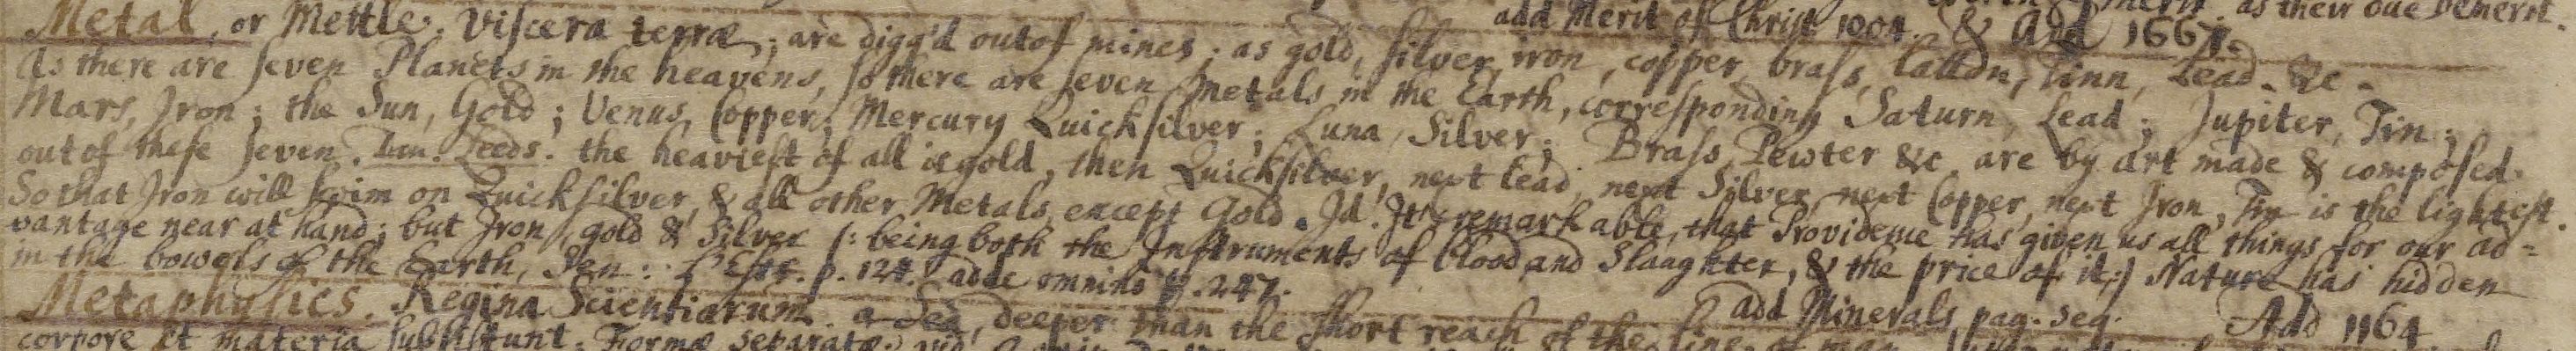 as their oue Demerit.
add Merit of Christ 1004. & Add 1667.
Metal, or Mettle: Viscera terræ; are digg'd out of mines; as gold, silver, iron, copper, brass, latton, Tinn, Lead. &c.
As there are seven Planets in the heavens, so there are seven Metals in the Earth, corresponding Saturn, Lead; Jupiter, Tin;
Mars, Iron; the Sun, Gold; Venus, Copper; Mercury Quicksilver; Luna, Silver; Brass, Pewter &c are by art made & composed.
out of these seven. Leeds. the heaviest of all is gold, then Quicksilver, next lead, next Silver, next Copper, next Iron, Tin is the lightest.
So that Iron will swim on Quicksilver, & all other Metals, except Gold. Id. It's remarkable, that Providence has given us all things for our ad=
vantage near at hand; but Iron, gold & Silver (: being both the Instruments of blood and Slaughter, & the price of it:) Nature has hidden
in the bowels of the Earth, Sen: L'Estr. p. 124. adde omnino p. 247. add Minerals pag. seq. Add 1164
Metaphysics. Regina Scientiarum. a Sea, deeper than the short reach of the line of man
corpore et materia subsistunt. Formæ separatæ.